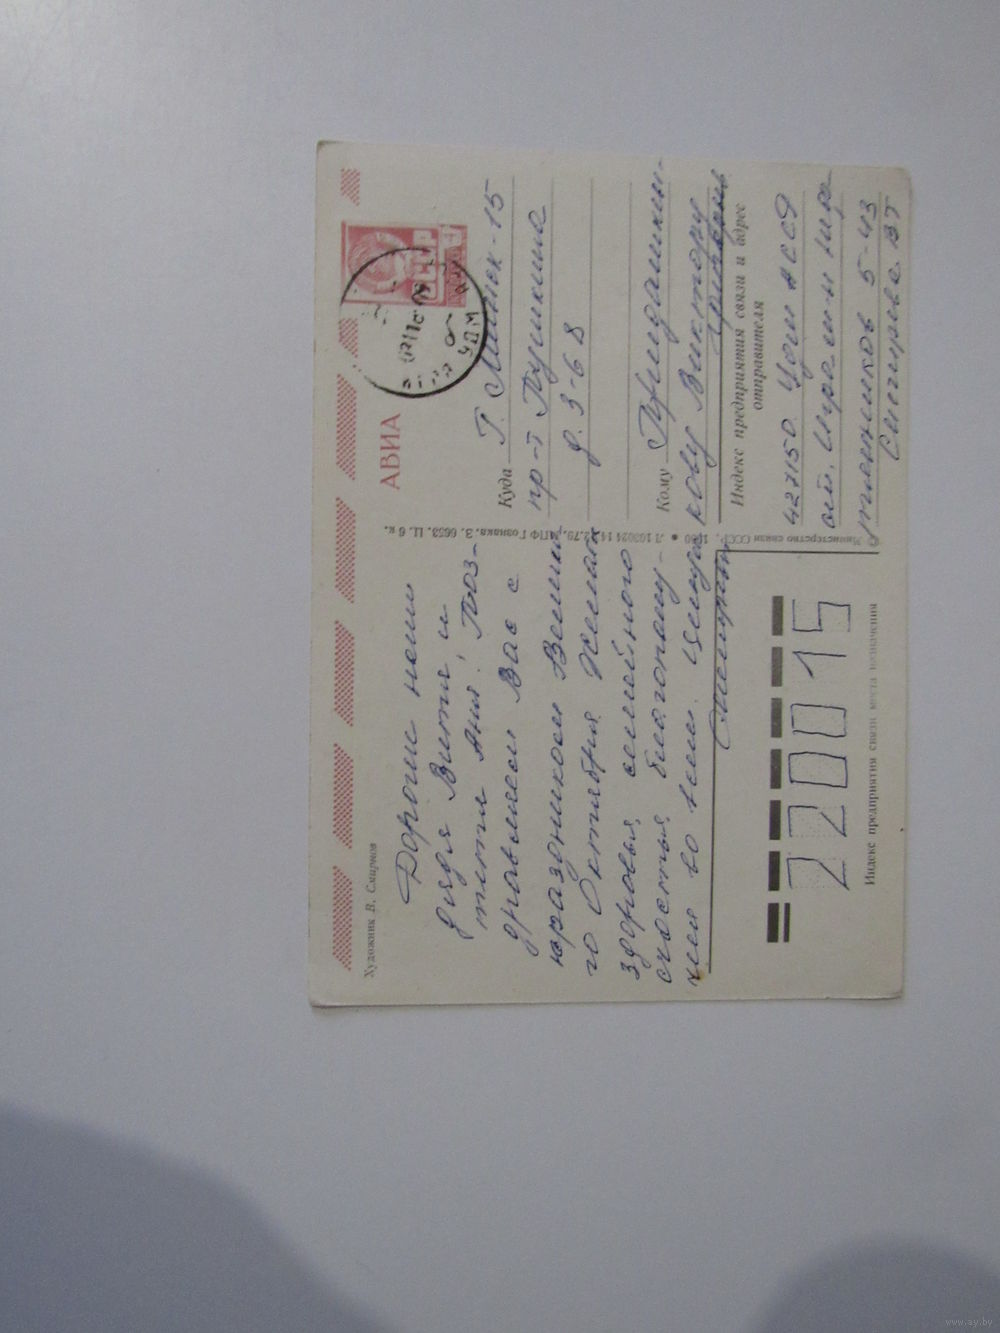 Художник В. Смирнов
АВИА
СССР
Дорогие наши
дядя Витя и
тетя Аня! Поз-
дравляем Вас с
праздником Велико-
го Октября Желаем
здоровья, семейного
счастья, благополу-
чия во всем. Целуем
Куда Г. Минск-15
пр-т Пушкина
д. 3-68
Кому
кову Виктору
Индекс предприятия связи и адрес
отправителя
427150. Удм АССР
5-43
Снигирева. ВТ
© Министерство связи СССР, 1980 ● Л 103021 14.12.79. МПФ Гознака. З. 6653. Ц. 6 к.
220015
Индекс предприятия связи места назначения
www.ay.by